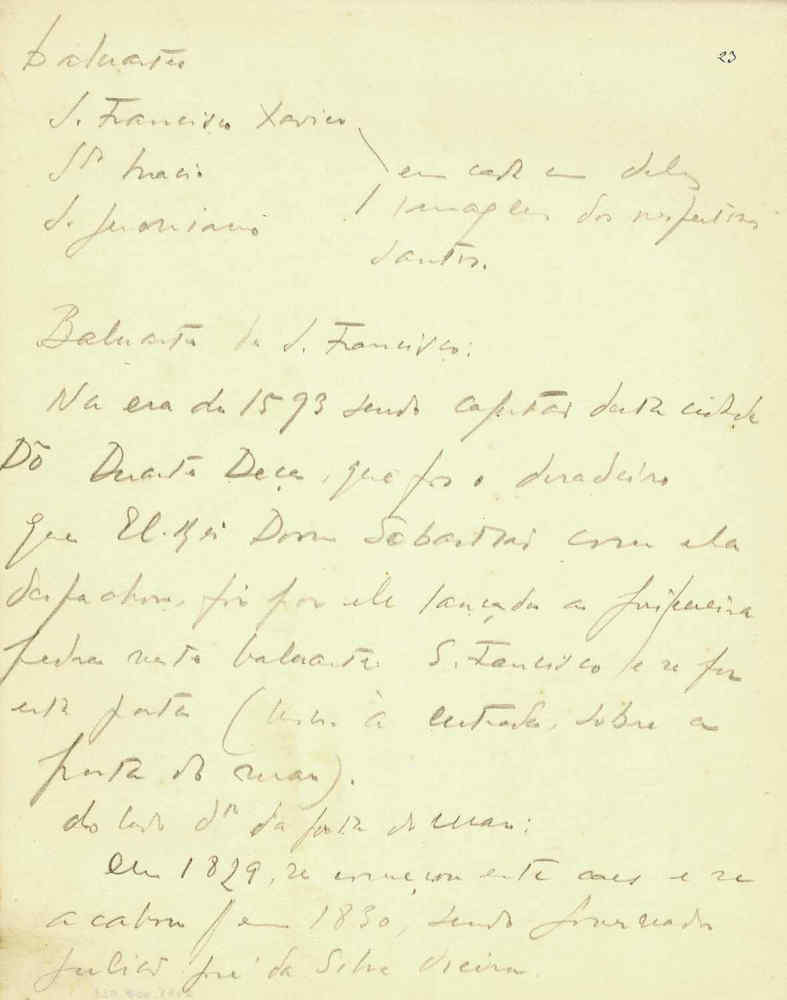 23
baluartes
S. Francisco Xavier
Sto Inacio
S. Jeronimo
em cada um deles
1 imagem dos respectivos
santos.
Baluarte de S. Francisco:
Na era de 1593 sendo capitão desta cidade
Dõ Duarte Deça, que foi o deradeiro
que El-Rei Dom Sebastião com ela
despachou, foi por ele lançada a primeira
pedra neste baluarte S. Francisco e se fez
esta porta ( à entrada, sobre a
porta do mar).
do lado dto da porta do mar:
Em 1829, se começou este caes e se
acabou em 1830, sendo governador
José da Silva Vieira